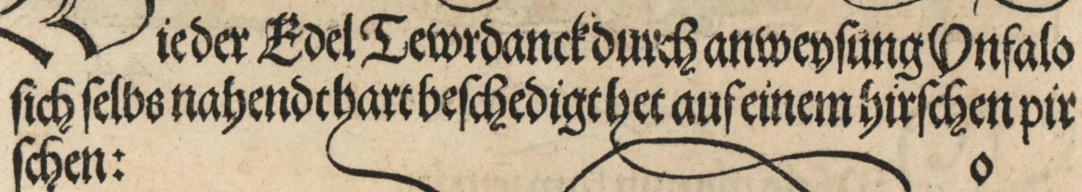 Wie der Edel Tewrdanck durch anweysung Vnfalo
sich selbs nahendt hart beschedigt het auf einem hirschen pir
schen: o